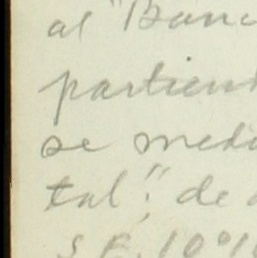 al "Banc
partien
se meda
tal"; de
S.E. 10%